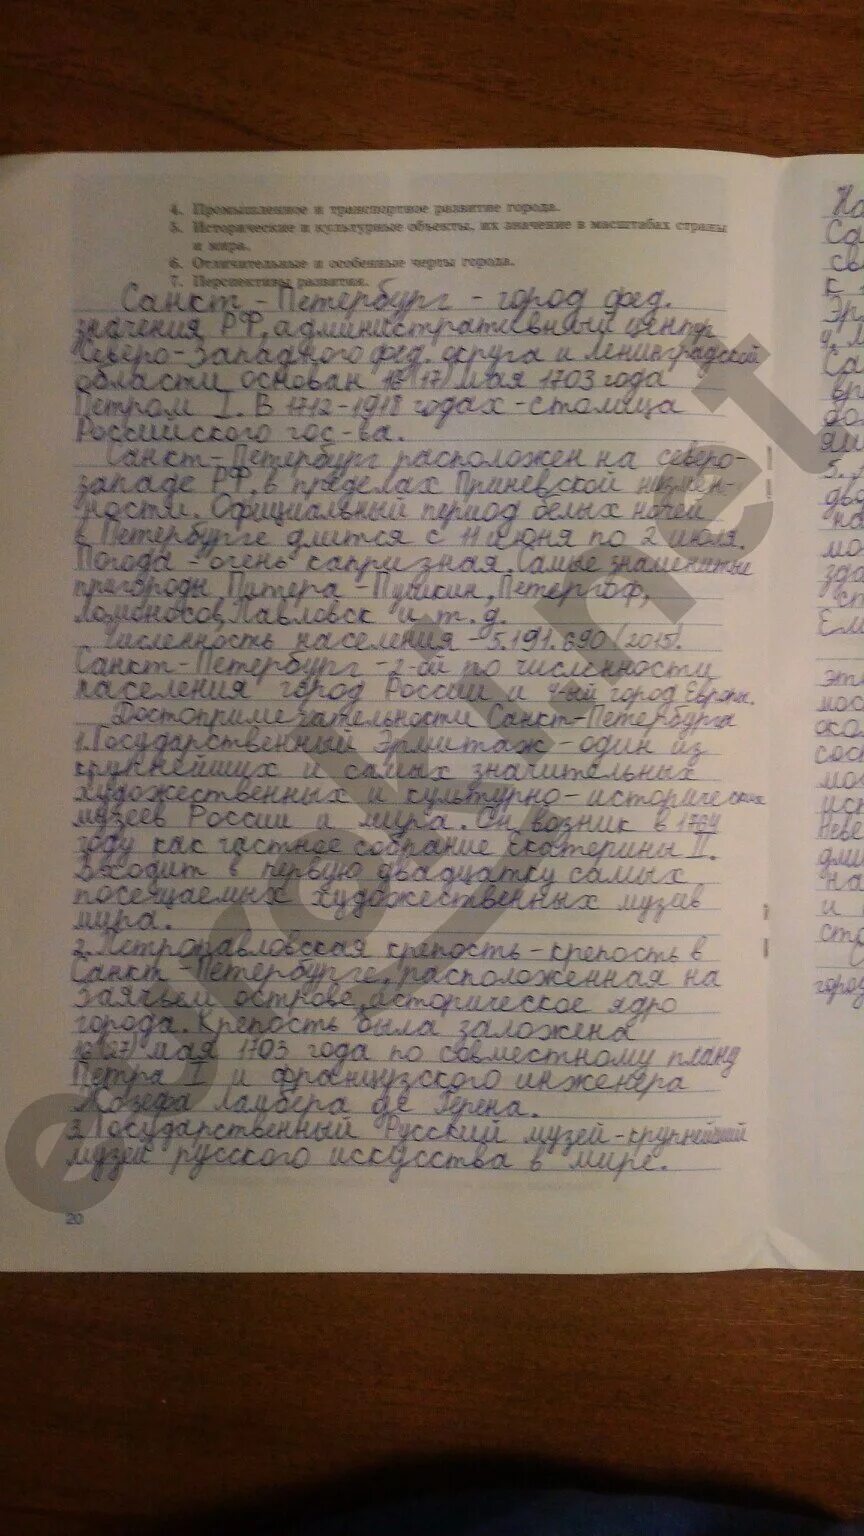 4. Промышленное и транспортное развитие города.
5. Исторические и культурные объекты, их значение в масштабах страны
и мира.
6. Отличительные и особенные черты города.
7. Перспективы развития.
Санкт-Петербург - город фед.
значения РФ, административный центр
Северо-Западного фед. округа и Ленинградской
области, основан 16(17) мая 1703 года
Петром I. В 1712-1918 годах - столица
Российского гос-ва.
Санкт-Петербург расположен на северо-
западе РФ, в пределах Приневской низмен-
ности. Официальный период белых ночей
в Петербурге длится с 11 июня по 2 июля.
Погода - очень капризная. Самые знаменитые
пригороды Питера - Пушкин, Петергоф,
Ломоносов, Павловск и т.д.
Численность населения - 5.191.690 (2015).
Санкт-Петербург - 2-ой по численности
населения город России и 4-ый город Европы.
Достопримечательности Санкт-Петербурга
1. Государственный Эрмитаж - один из
крупнейших и самых значительных
художественных и культурно-исторических
музеев России и мира. Он возник в 1764
году как частное собрание Екатерины II.
Входит в первую двадцатку самых
посещаемых художественных музеев
мира.
2. Петропавловская крепость - крепость в
Санкт-Петербурге, расположенная на
Заячьем острове, историческое ядро
города. Крепость была заложена
16(27) мая 1703 года по совместному плану
Петра I и французского инженера
Жозефа Ламбера де Герена.
3. Государственный Русский музей - крупнейший
музей русского искусства в мире.
20
euroki.net